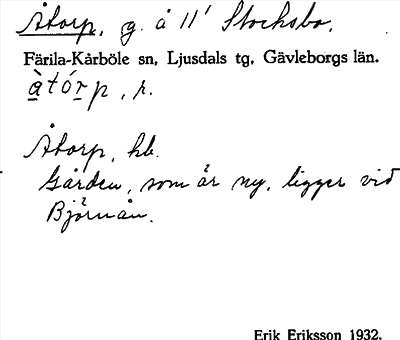 Åtorp, g. å 11¹ Stocksbo,
Färila-Kårböle sn, Ljusdals tg, Gävleborgs län.
àtórp, r.
Åtorp, hb.
Gården, som är ny, ligger vid
Björnån.
Erik Eriksson 1932.